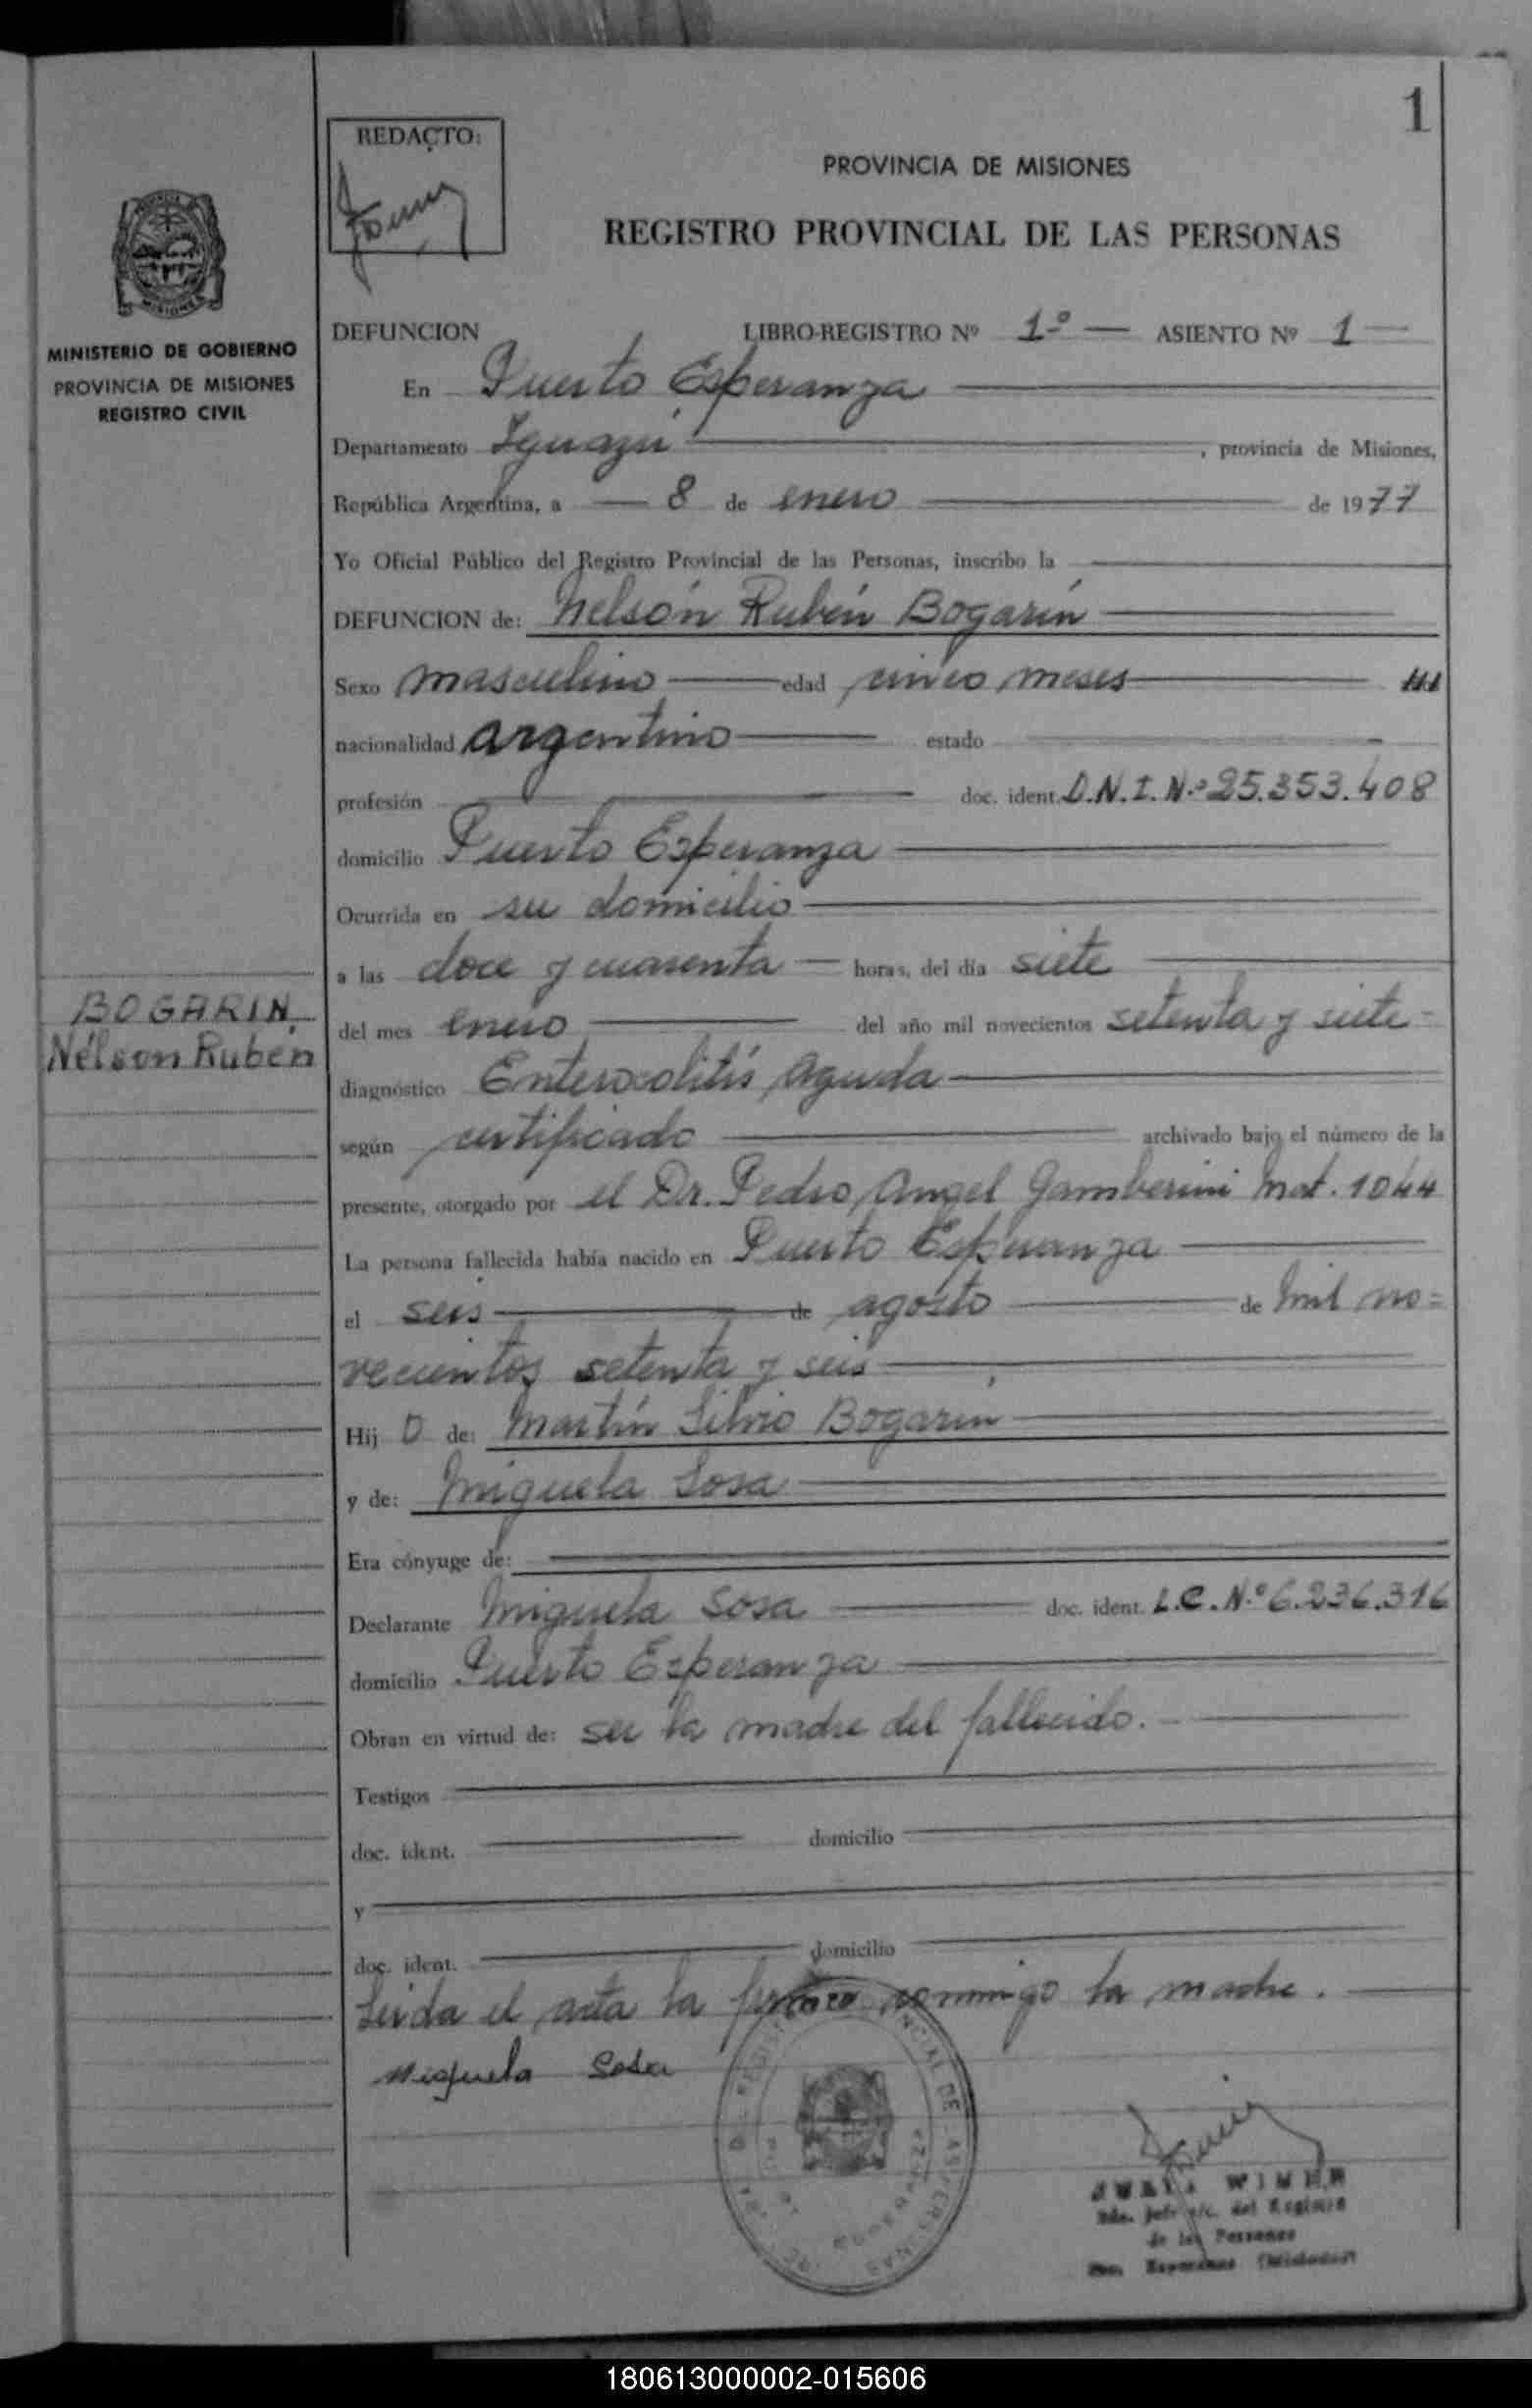 1
REDACTO:
PROVINCIA DE MISIONES
REGISTRO PROVINCIAL DE LAS PERSONAS
MINISTERIO DE GOBIERNO
PROVINCIA DE MISIONES
REGISTRO CIVIL
DEFUNCION LIBRO-REGISTRO Nº 1º — ASIENTO Nº 1 —
En Puerto Esperanza
Departamento Iguazú, provincia de Misiones,
República Argentina, a — 8 de enero de 1977
Yo Oficial Público del Registro Provincial de las Personas, inscribo la
DEFUNCION de: Nelsón Rubén Bogarín
Sexo masculino edad cinco meses
nacionalidad argentino estado
profesión doc. ident. D.N.I. N.º 25.353.408
domicilio Puerto Esperanza
Ocurrida en su domicilio
a las doce y cuarenta — horas, del día siete
BOGARIN,
Nélson Rubén
del mes enero del año mil novecientos setenta y siete
diagnóstico Enterocolitís aguda
según certificado archivado bajo el número de la
presente, otorgado por el Dr. Pedro Angel Gamberini Mat. 1044
La persona fallecida había nacido en Puerto Esperanza
el seis de agosto de mil no=
vecientos setenta y seis
Hij o de: Martín Silvio Bogarin
y de: Miguela Sosa
Era cónyuge de:
Declarante Miguela Sosa doc. ident. L.C. N.º 6.236.316
domicilio Puerto Esperanza
Obran en virtud de: ser la madre del fallecido.
Testigos
doc. ident. domicilio
y
doc. ident. domicilio
Leida el acta la firma conmigo la madre.
Miguela Sosa
WINER
Jefe a/c. del Registro
de las Personas
Pto. Esperanza (Misiones)
180613000002-015606